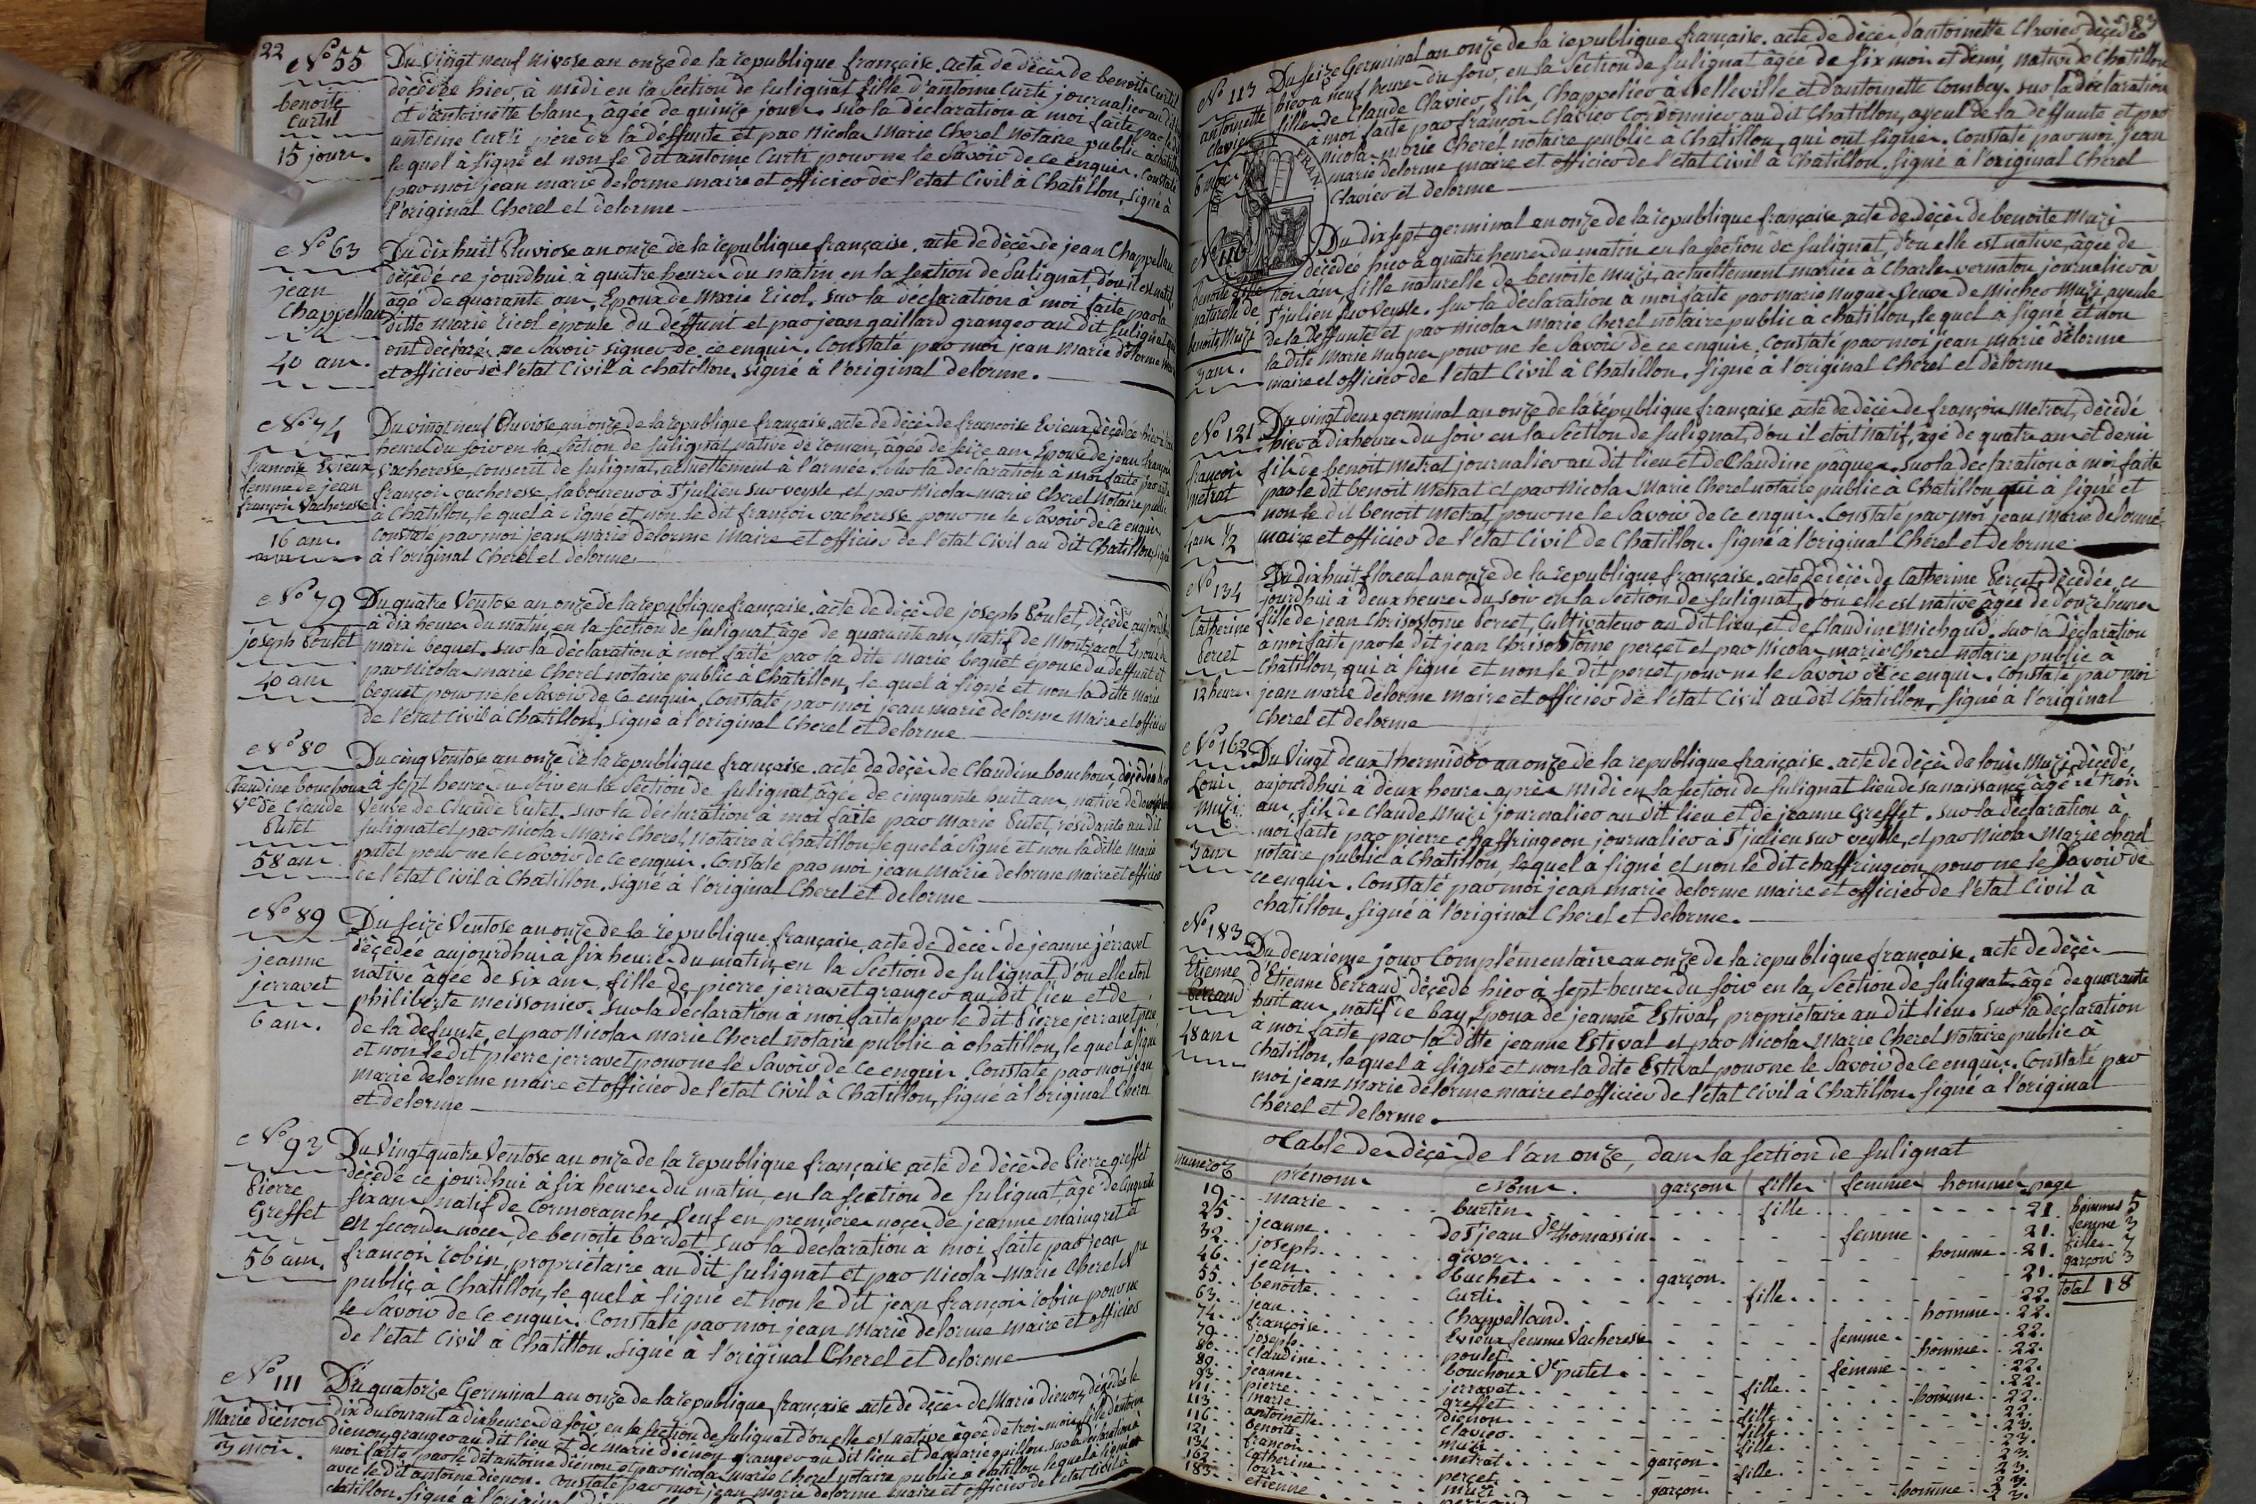 22
N° 55
benoite
Curtil
15 jours.
Du vingt neuf Nivose an onze de la republique française. acte de décès de benoite Curtil
décédée hier à midi en la section de sulignat fille d'antoine Curti journalier au dit lieu
et d'antoinette blanc, âgée de quinze jours. sur la déclaration à moi faite par le dit
antoine Curti père de la deffunte et par Nicolas Marie Cherel Notaire public à chatillon
le quel à signé et non le dit antoine Curti pour ne le savoir de ce enquis. Constaté
par moi jean marie delorme maire et officier de l'etat Civil à Chatillon, signé à
l'original Cherel et delorme
N° 63
jean
Chappelland
40 ans.
Du dix huit Pluviose an onze de la republique française. acte de décès de jean Chappelland
décédé ce jourdhui à quatre heures du matin en la section de Sulignat, d'ou il est natif
âgé de quarante ans, Epoux de Marie Ticol. sur la déclaration à moi faite par la
ditte marie Ticol épouse du deffunt et par jean gaillard granger au dit sulignat qui
ont déclaré ne savoir signer de ce enquis. Constaté par moi jean Marie delorme Maire
et officier de l'etat Civil à chatillon. signé à l'original delorme.
N° 74
francoise Evieux
femme de jean
françois Vacheresse
16 ans.
Du vingt neuf Pluviose an onze de la republique française. acte de décès de francoise Evieux décédée hier à
heures du soir en la section de sulignat native de romans, âgée de seize ans Epouse de jean françois
Vacheresse, Conscrit de sulignat, actuellement à l'armée. sur la declaration à moi faite par
françois vacheresse, laboureur à St julien sur veysle, et par Nicolas marie Cherel Notaire public
à Chatillon, le quel à signé et non le dit françois vacheresse pour ne le savoir de ce enquis
Constaté par moi jean marie delorme Maire et officier de l'etat Civil au dit Chatillon, signé
à l'original Cherel et delorme
N° 79
joseph Poulet
40 ans
Du quatre Ventose an onze de la republique française, acte de décès de joseph Poulet, décédé aujourdhui
à dix heures du matin en la section de sulignat âgé de quarante ans, natif de Montracol Epoux de
marie bequet. sur la déclaration à moi faite par la dite Marie bequet épouse du deffunt et
par Nicolas marie Cherel notaire public à Chatillon, le quel à signé et non la ditte Marie
bequet pour ne le savoir de ce enquis. Constaté par moi jean marie delorme Maire et officier
de l'etat Civil à Chatillon. signé à l'original Cherel et delorme
N° 80
Claudine bouchoux
Ve de Claude
Putet
58 ans
Du cinq Ventose an onze de la republique française. acte de décès de Claudine bouchoux, décédée hier
à sept heures du soir en la section de sulignat, âgée de cinquante huit ans, native de
veuve de Claude Putet. sur la déclaration à moi faite par Marie Putet, résidante au dit
sulignat et par Nicolas Marie Cherel, Notaire à Chatillon, le quel à signé et non la ditte Marie
putet pour ne le savoir de ce enquis. Constaté par moi jean Marie delorme maire et officier
de l'etat Civil à Chatillon. signé à l'original Cherel et delorme
N° 89
jeanne
jerravet
6 ans.
Du seize Ventose an onze de la republique française. acte de décès de jeanne jerravet
décédée aujourdhui à six heures du matin, en la section de sulignat, d'ou elle étoit
native âgée de six ans, fille de pierre jerravet granger au dit lieu et de
philiberte meissonier. sur la déclaration à moi faite par le dit Pierre jerravet, père
de la defunte, et par Nicolas marie Cherel notaire public à chatillon, le quel à signé
et non le dit pierre jerravet pour ne le savoir de ce enquis. Constaté par moi jean
marie delorme maire et officier de l'etat Civil à Chatillon, signé à l'original Cherel
et delorme
N° 93
Pierre
Greffet
56 ans.
Du vingt quatre Ventose an onze de la republique française acte de décès de Pierre greffet
décédé ce jourdhui à six heures du matin, en la section de sulignat, âgé de Cinquante
six ans natif de Cormoranche Veuf en premières noces de jeanne maingret et
en secondes noces de benoite bardet. sur la declaration à moi faite par jean
françois robin, propriétaire au dit sulignat et par Nicolas Marie Cherel Nre
public à Chatillon, le quel à signé et non le dit jean françois robin pour ne
le savoir de ce enquis. Constaté par moi jean Marie delorme maire et officier
de l'etat Civil à Chatillon. signé à l'original Cherel et delorme
N° 111
Marie dienon
3 mois.
Du quatorze Germinal an onze de la republique française acte de décès de Marie dienon, décédée le
dix du Courant à dix heures du soir, en la section de sulignat d'ou elle est native âgée de trois mois, fille d'antoine
dienon granger au dit lieu et de marie
moi faite par le dit antoine dienon et par nicolas marie Cherel notaire public à chatillon le quel à signé
avec le dit antoine dienon. Constaté par moi jean marie delorme maire et officier de l'etat Civil à
chatillon. signé à l'original
23
N° 113
antoinette
Clavier
6 mois
Du seize Germinal an onze de la republique française. acte de décès d'antoinette Clavier décédée
hier à neuf heures du soir, en la Section de sulignat âgée de six mois et demi, native de Chatillon
fille de Claude Clavier fils, Chappelier à Belleville et d'antoinette Combey. sur la déclaration
à moi faite par françois Clavier Cordonnier au dit Chatillon, ayeul de la deffunte et par
Nicolas marie Cherel notaire public à Chatillon, qui ont signés. Constaté par moi jean
marie delorme maire et officier de l'etat Civil à Chatillon. signé à l'original Cherel
Clavier et delorme
N° 116
benoite fille
naturelle de
benoite Muzi
3 ans.
Du dix sept germinal an onze de la republique française acte de décès de benoite Muzi
décédée hier à quatre heures du matin en la section de sulignat, d'ou elle est native, âgée de
trois ans, fille naturelle de benoite Muzi, actuellement mariée à Charles vernaton journalier à
St julien sur Veysle. sur la déclaration à moi faite par Marie Nugue veuve de Micher Muzi, ayeule
de la deffunte et par Nicolas Marie Cherel notaire public à chatillon, le quel à signé et non
la dite Marie Nugues pour ne le savoir de ce enquis. Constaté par moi jean marie delorme
maire et officier de l'etat Civil à Chatillon. signé à l'original Cherel et delorme
N° 121
francois
metrat
4 ans ½
Du vingt deux germinal an onze de la république française acte de décès de françois Metrat, décédé
hier à dix heures du soir en la Section de sulignat, d'ou il etoit natif, âgé de quatre ans et demi
fils de benoit Metrat journalier au dit lieu et de Claudine pâques. sur la déclaration à moi faite
par le dit benoit Metrat et par Nicolas Marie Cherel notaire public à Chatillon qui à signé et
non le dit benoit Metrat, pour ne le savoir de ce enquis. Constaté par moi jean Marie delorme
maire et officier de l'etat Civil de Chatillon. signé à l'original Cherel et delorme
N° 134
Catherine
Percet
12 heures.
Du dix huit floreal an onze de la republique française. acte de décès de Catherine Perçet, décédée ce
jourdhui à deux heures du soir en la section de sulignat, d'ou elle est native âgée de douze heures
fille de jean Chrisostome Percet, Cultivateur au dit lieu, et de Claudine Michaud. sur la déclaration
à moi faite par le dit jean Chrisostôme perçet et par Nicolas marie Cherel notaire public à
Chatillon, qui à signé et non le dit perçet pour ne le savoir de ce enquis. Constaté par moi
jean marie delorme maire et officier de l'etat Civil au dit Chatillon, signé à l'original
Cherel et delorme
N° 162
Louis
Muzi
3 ans
Du Vingt deux thermidor an onze de la republique française. acte de décès de louis Muzi, décédé,
aujourdhui à deux heures après midi en la section de sulignat lieu de sa naissance, âgé de trois
ans, fils de Claude Muzi journalier au dit lieu et de jeanne Greffet. sur la déclaration à
moi faite par pierre Chaffringeon journalier à St julien sur veysle, et par Nicolas Marie Cherel
notaire public à Chatillon, lequel à signé et non le dit chaffringeon pour ne le savoir de
ce enquis. Constaté par moi jean marie delorme maire et officier de l'etat Civil à
chatillon. signé à l'original Cherel et delorme.
N° 183
Etienne
Perraud
48 ans
Du deuxieme jour Complémentaire an onze de la republique française. acte de décès
d'Etienne Perraud, décédé hier à sept heures du soir en la section de sulignat âgé de quarante
huit ans, natif de bay Epoux de jeanne Estival, propriétaire au dit lieu. sur la déclaration
à moi faite par la ditte jeanne Estival et par Nicolas Marie Cherel Notaire public à
Chatillon, le quel à signé et non la dite Estival pour ne le savoir de ce enquis. Constaté par
moi jean marie delorme maire et officier de l'etat Civil à Chatillon. signé à l'original
Cherel et delorme.
Table des décès de l'an onze, dans la section de sulignat
numeros prénoms Noms. garçons filles femmes hommes page
19 marie burtin fille 21.
25 jeanne do St jean Ve thomassin femme 21.
32 joseph givor homme 21.
46 jean buchet garçon 21.
55 benoite Curti. fille 22.
63 jean Chappelland. homme 22.
74 françoise Evieux femme Vacheresse femme 22.
79 joseph poulet homme 22.
80 Claudine bouchoux Ve putet femme 22.
89 jeanne jerravet fille 22.
93 pierre greffet homme 22.
111 marie dienon fille 22.
113 antoinette Clavier fille 23.
116 benoite muzi fille 23.
121 francois metrat garçon 23.
134 Catherine perçet fille 23.
162 louis muzi garçon 23.
183 etienne perraud homme 23.
hommes 5
femme 3
filles 7
garçons 3
total 18